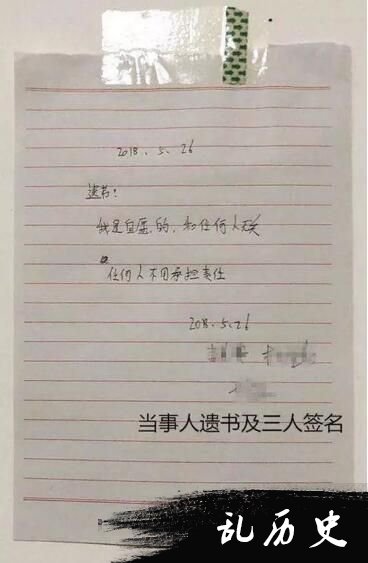 2018.5.26
遗书:
我是自愿的,和任何人无关
任何人不用承担责任
2018.5.26
当事人遗书及三人签名
乱历史